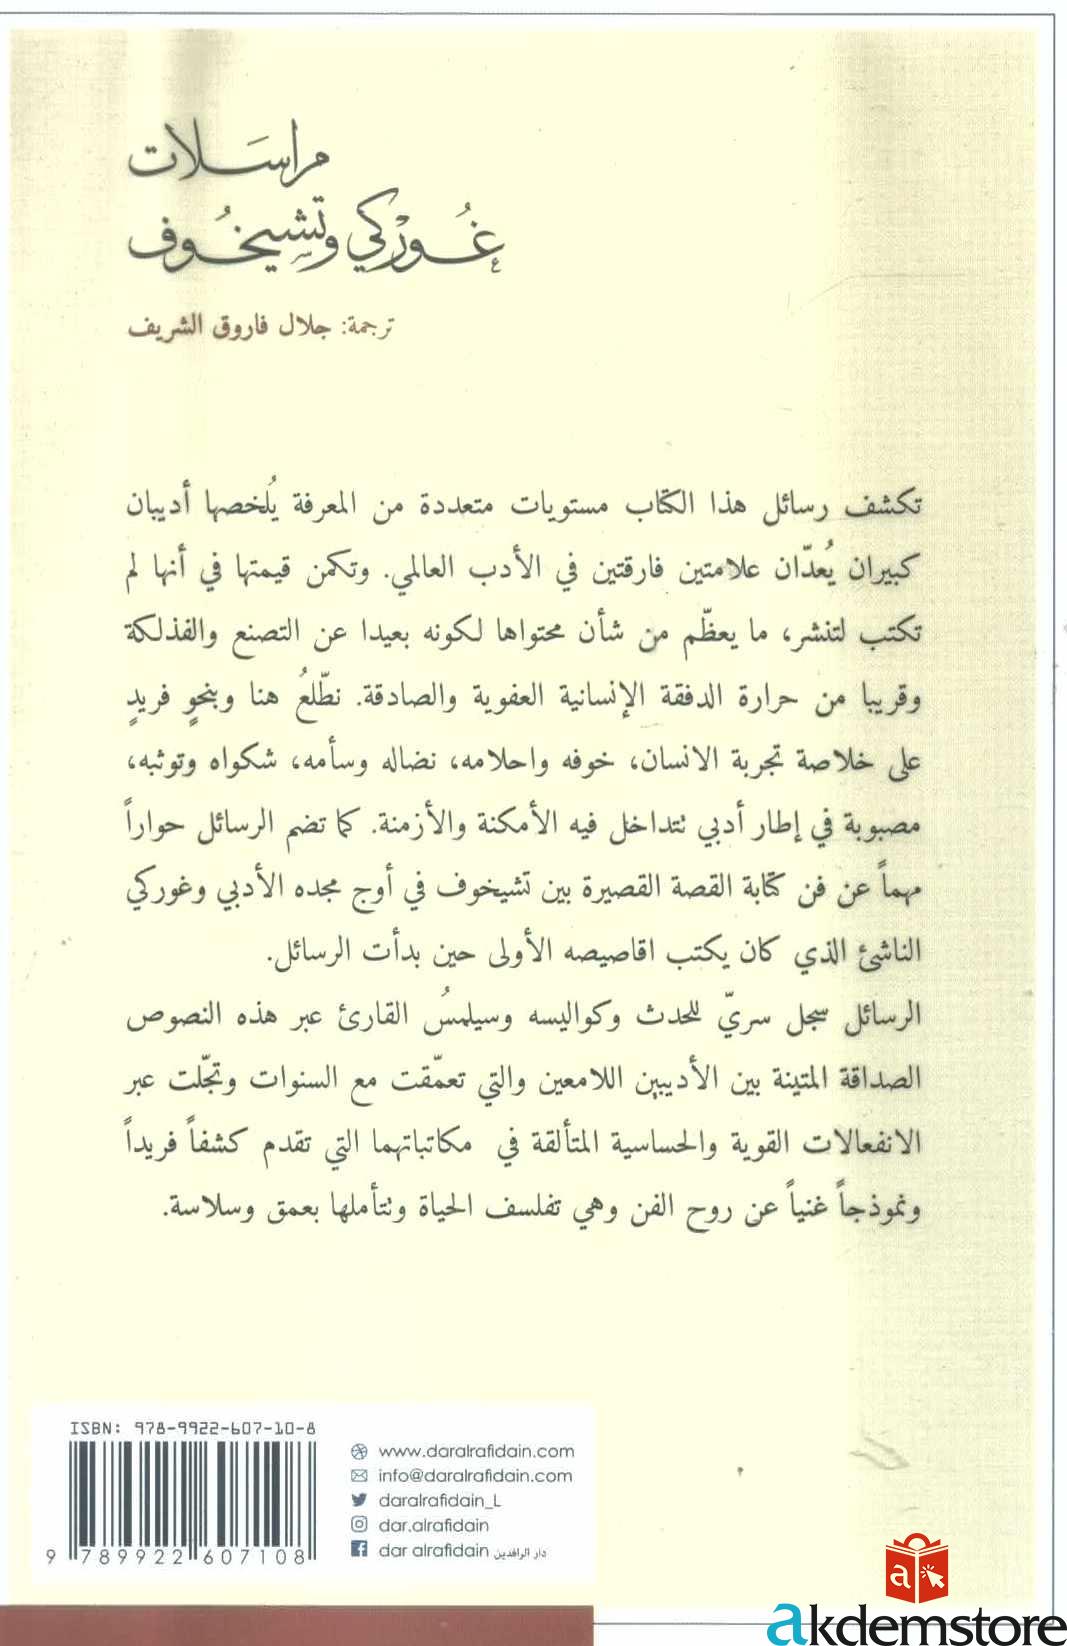 مراسلات
غُوركي وتشِيخُوف
ترجمة: جلال فاروق الشريف
تكشف رسائل هذا الكتاب مستويات متعددة من المعرفة يُلخصها أديبان
كبيران يُعدّان علامتين فارقتين في الأدب العالمي. وتكمن قيمتها في أنها لم
تكتب لتنشر، ما يعظّم من شأن محتواها لكونه بعيدا عن التصنع والفذلكة
وقريبا من حرارة الدفقة الإنسانية العفوية والصادقة. نطّلعُ هنا وبنحوٍ فريدٍ
على خلاصة تجربة الانسان، خوفه واحلامه، نضاله وسأمه، شكواه وتوثبه،
مصبوبة في إطار أدبي تتداخل فيه الأمكنة والأزمنة. كما تضم الرسائل حواراً
مهماً عن فن كتابة القصة القصيرة بين تشيخوف في أوج مجده الأدبي وغوركي
الناشئ الذي كان يكتب اقاصيصه الأولى حين بدأت الرسائل.
الرسائل سجل سريّ للحدث وكواليسه وسيلمسُ القارئ عبر هذه النصوص
الصداقة المتينة بين الأديبين اللامعين والتي تعمّقت مع السنوات وتجلّت عبر
الانفعالات القوية والحساسية المتألقة في مكاتباتهما التي تقدم كشفاً فريداً
ونموذجاً غنياً عن روح الفن وهي تفلسف الحياة وتتأملها بعمق وسلاسة.
ISBN: 978-9922-607-10-8
9 789922 607108
www.daralrafidain.com
info@daralrafidain.com
daralrafidain_L
dar.alrafidain
dar alrafidain دار الرافدين
a
akdemstore